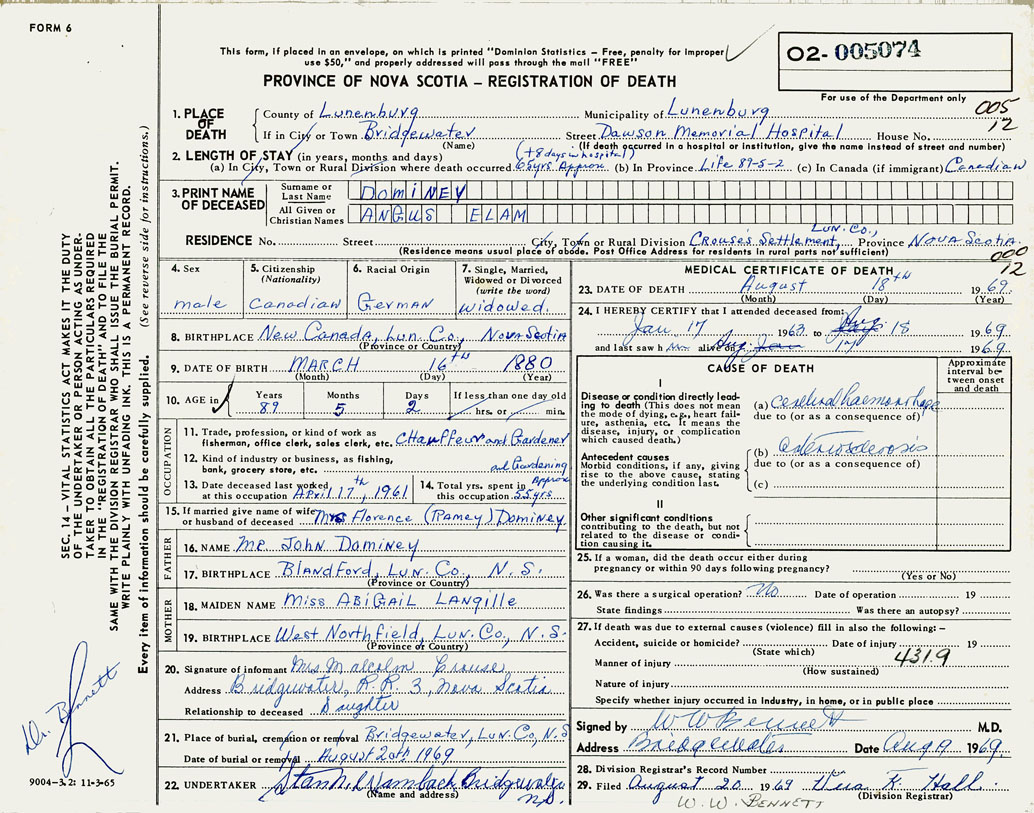 FORM 6
This form, if placed in an envelope, on which is printed "Dominion Statistics – Free, penalty for improper
use $50," and properly addressed will pass through the mail "FREE"
O2- 005074
PROVINCE OF NOVA SCOTIA – REGISTRATION OF DEATH
For use of the Department only
005
12
1. PLACE OF DEATH
County of Lunenburg Municipality of Lunenburg
If in City or Town Bridgewater Street Dawson Memorial Hospital House No.
(Name) (If death occurred in a hospital or institution, give the name instead of street and number)
2. LENGTH OF STAY (in years, months and days) (+8 days in hospital)
(a) In City, Town or Rural Division where death occurred 65yrs Approx (b) In Province Life 89-5-2 (c) In Canada (if immigrant) Canadian
3. PRINT NAME OF DECEASED
Surname or Last Name DOMINEY
All Given or Christian Names ANGUS ELAM
RESIDENCE No. Street City, Town or Rural Division Crouse's Settlement, Lun. Co., Province NOVA Scotia.
(Residence means usual place of abode. Post Office Address for residents in rural parts not sufficient)
000
12
4. Sex
male
5. Citizenship
(Nationality)
Canadian
6. Racial Origin
German
7. Single, Married,
Widowed or Divorced
(write the word)
widowed.
8. BIRTHPLACE New Canada, Lun. Co., Nova Scotia
(Province or Country)
9. DATE OF BIRTH MARCH 16th 1880
(Month) (Day) (Year)
10. AGE in
Years 89
Months 5
Days 2
If less than one day old
hrs. or min.
OCCUPATION
11. Trade, profession, or kind of work as
fisherman, office clerk, sales clerk, etc. Chauffeur and Gardener
12. Kind of industry or business, as fishing,
bank, grocery store, etc. and Gardening
13. Date deceased last worked
at this occupation April 17th, 1961
14. Total yrs. spent in
this occupation 55yrs Approx
15. If married give name of wife
or husband of deceased Mrs Florence (Ramey) Dominey
FATHER
16. NAME Mr. John Dominey
17. BIRTHPLACE Blandford, Lun. Co., N. S.
(Province or Country)
MOTHER
18. MAIDEN NAME Miss ABIGAIL LANGILLE
19. BIRTHPLACE West Northfield, Lun. Co., N. S.
(Province or Country)
20. Signature of informant Mrs. Malcolm Crouse,
Address Bridgewater, R.R. 3, Nova Scotia
Relationship to deceased Daughter
21. Place of burial, cremation or removal Bridgewater, Lun. Co, N.S
Date of burial or removal August 20th, 1969
22. UNDERTAKER Wambach Bridgewater
(Name and address) N.S.
MEDICAL CERTIFICATE OF DEATH
23. DATE OF DEATH August 18th 1969.
(Month) (Day) (Year)
24. I HEREBY CERTIFY that I attended deceased from:
Jan 17 1963 to Aug 18 1969
and last saw h im alive on Aug Jan 17 1969.
CAUSE OF DEATH
Approximate
interval be-
tween onset
and death
I
Disease or condition directly lead-
ing to death (This does not mean
the mode of dying, e.g., heart fail-
ure, asthenia, etc. It means the
disease, injury, or complication
which caused death.)
(a) Cerebral haemorrhage
due to (or as a consequence of)
Antecedent causes
Morbid conditions, if any, giving
rise to the above cause, stating
the underlying condition last.
(b) arteriosclerosis
due to (or as a consequence of)
(c)
II
Other significant conditions
contributing to the death, but not
related to the disease or condi-
tion causing it.
25. If a woman, did the death occur either during
pregnancy or within 90 days following pregnancy?
(Yes or No)
26. Was there a surgical operation? No Date of operation 19
State findings Was there an autopsy?
27. If death was due to external causes (violence) fill in also the following: –
Accident, suicide or homicide? Date of injury 19
(State which)
Manner of injury 431.9
(How sustained)
Nature of injury
Specify whether injury occurred in Industry, in home, or in public place
Signed by W W Bennett M.D.
Address Bridgewater Date Aug 19 1969.
28. Division Registrar's Record Number
29. Filed August 20 1969 K. Hall.
(Division Registrar)
W. W. BENNETT
SEC. 14 – VITAL STATISTICS ACT MAKES IT THE DUTY
OF THE UNDERTAKER OR PERSON ACTING AS UNDER-
TAKER TO OBTAIN ALL THE PARTICULARS REQUIRED
IN THE "REGISTRATION OF DEATH" AND TO FILE THE
SAME WITH THE DIVISION REGISTRAR WHO SHALL ISSUE THE BURIAL PERMIT.
WRITE PLAINLY WITH UNFADING INK. THIS IS A PERMANENT RECORD.
Every item of information should be carefully supplied. (See reverse side for instructions.)
Dr. Bennett
9004-3.2: 11-3-65